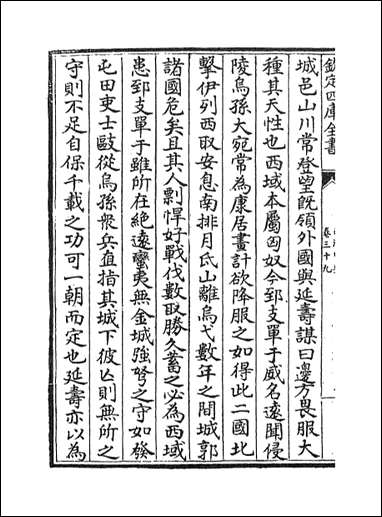 欽定四庫全書
卷三十九
城邑山川常登望既領外國與延壽謀曰邊方畏服大
種其天性也西域本屬匈奴今郅支單于威名遠聞侵
陵烏孫大宛常為康居畫計欲降服之如得此二國北
擊伊列西取安息南排月氏山離烏弋數年之間城郭
諸國危矣且其人剽悍好戰伐數取勝久蓄之必為西域
患郅支單于雖所在絕遠蠻夷無金城強弩之守如發
屯田吏士敺從烏孫衆兵直指其城下彼亡則無所之
守則不足自保千載之功可一朝而定也延壽亦以為